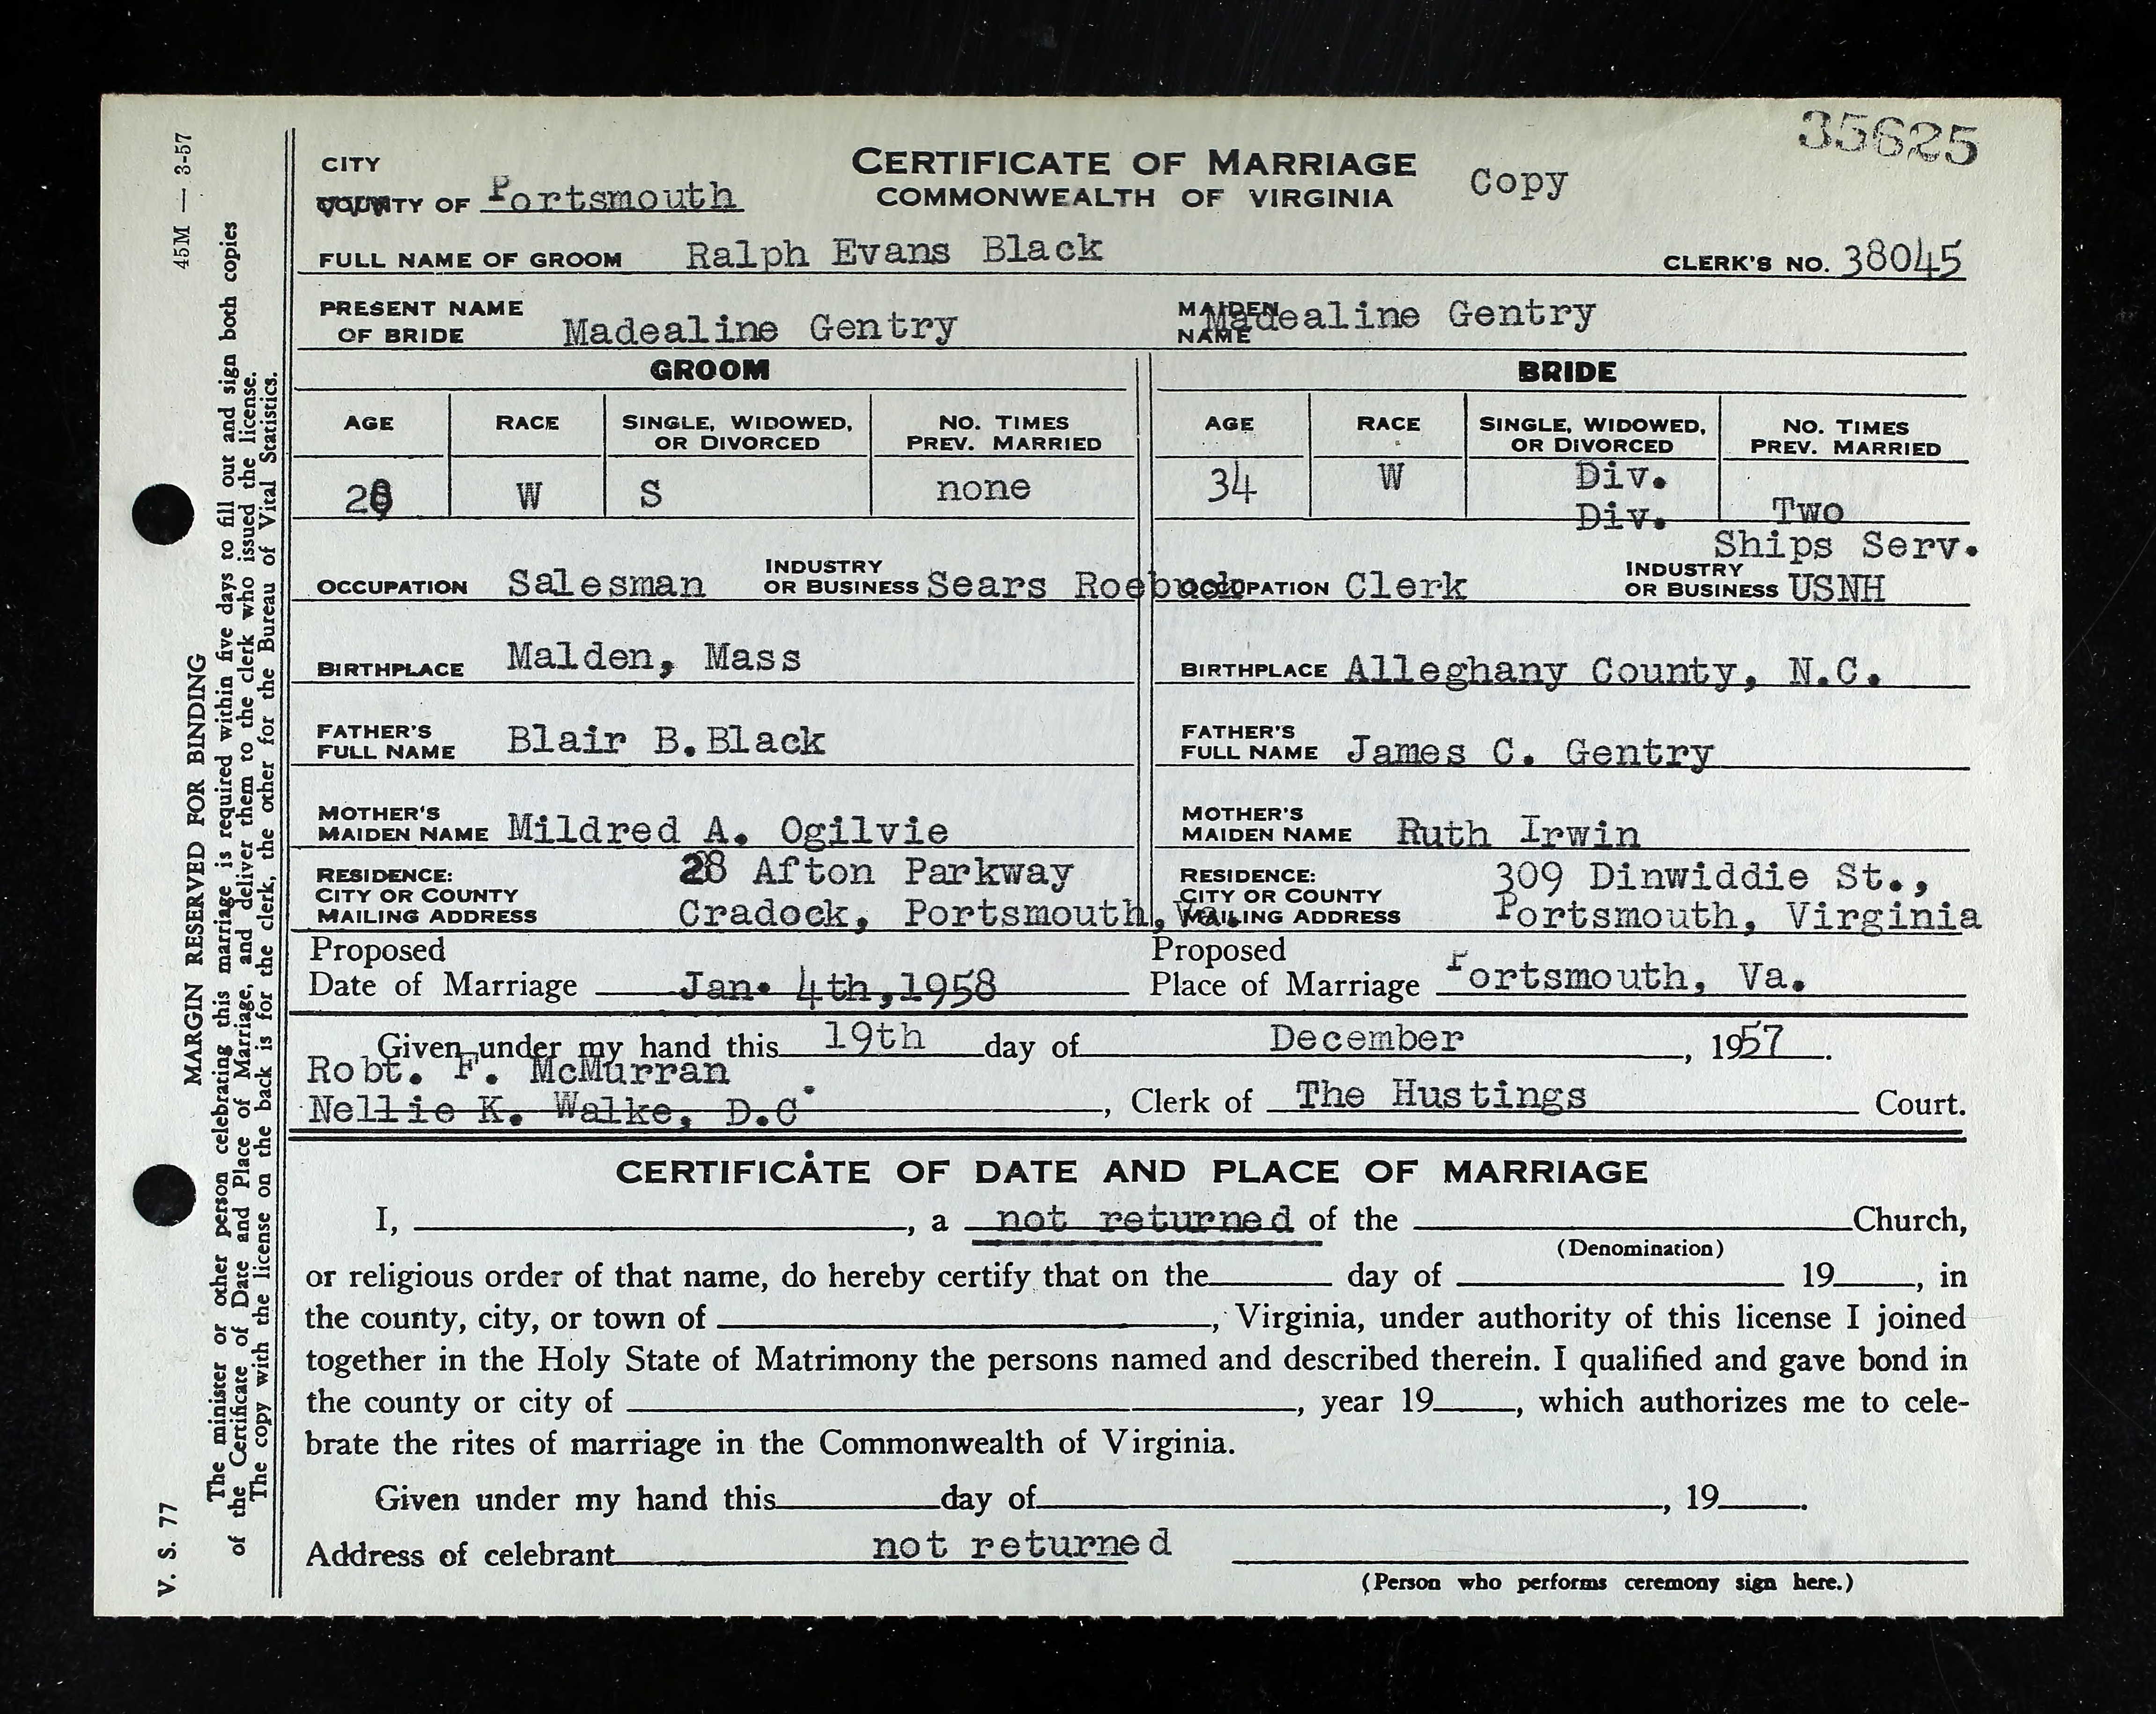 35625
CITY
COUNTY OF Portsmouth
CERTIFICATE OF MARRIAGE
COMMONWEALTH OF VIRGINIA
Copy
FULL NAME OF GROOM Ralph Evans Black CLERK'S NO. 38045
PRESENT NAME
OF BRIDE Madealine Gentry
MAIDEN
NAME Madealine Gentry
GROOM BRIDE
AGE RACE SINGLE, WIDOWED, OR DIVORCED NO. TIMES PREV. MARRIED AGE RACE SINGLE, WIDOWED, OR DIVORCED NO. TIMES PREV. MARRIED
W S none 34 W Div.
Div. Two
Ships Serv.
OCCUPATION Salesman INDUSTRY OR BUSINESS Sears Roebuck OCCUPATION Clerk INDUSTRY OR BUSINESS USNH
BIRTHPLACE Malden, Mass BIRTHPLACE Alleghany County, N.C.
FATHER'S FULL NAME Blair B.Black FATHER'S FULL NAME James C. Gentry
MOTHER'S MAIDEN NAME Mildred A. Ogilvie MOTHER'S MAIDEN NAME Ruth Irwin
RESIDENCE: 28 Afton Parkway RESIDENCE: 309 Dinwiddie St.,
CITY OR COUNTY CITY OR COUNTY
MAILING ADDRESS Cradock, Portsmouth, Va. MAILING ADDRESS Portsmouth, Virginia
Proposed Proposed
Date of Marriage Jan. 4th,1958 Place of Marriage Portsmouth, Va.
Given under my hand this 19th day of December, 1957.
Robt. F. McMurran
Nellie K. Walke, D.C., Clerk of The Hustings Court.
CERTIFICATE OF DATE AND PLACE OF MARRIAGE
I, , a not returned of the Church,
(Denomination)
or religious order of that name, do hereby certify that on the day of 19 , in
the county, city, or town of , Virginia, under authority of this license I joined
together in the Holy State of Matrimony the persons named and described therein. I qualified and gave bond in
the county or city of , year 19 , which authorizes me to cele-
brate the rites of marriage in the Commonwealth of Virginia.
Given under my hand this day of , 19 .
Address of celebrant not returned
(Person who performs ceremony sign here.)
V. S. 77 MARGIN RESERVED FOR BINDING 45M — 3-57
The minister or other person celebrating this marriage is required within five days to fill out and sign both copies
of the Certificate of Date and Place of Marriage, and deliver them to the clerk who issued the license.
The copy with the license on the back is for the clerk, the other for the Bureau of Vital Statistics.